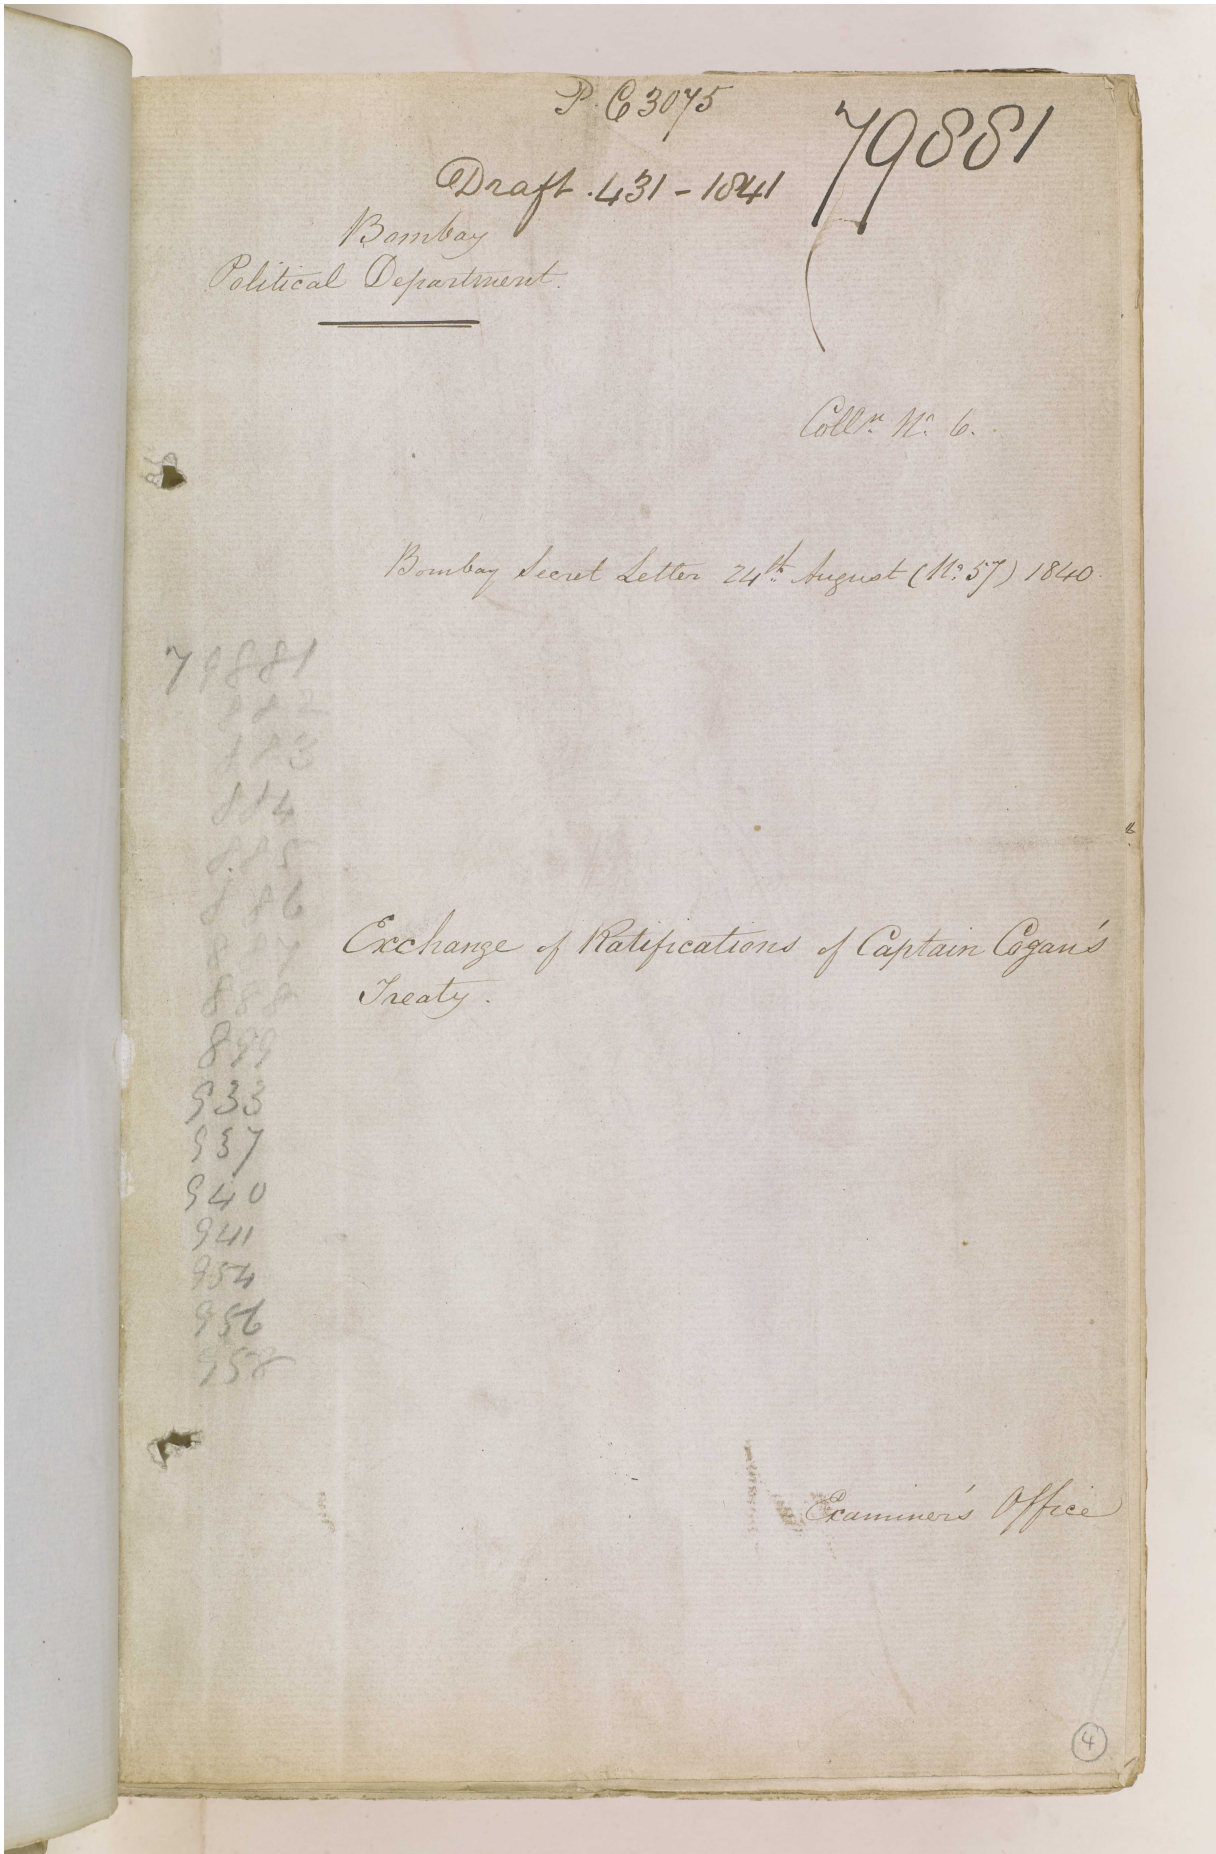 P. C 3075
79881
Draft. 431 - 1841
Bombay
Political Department.
Colln. No. 6.
Bombay Secret Letter 24th August (No. 57) 1840.
79881
882
883
884
885
886
887
888
899
933
937
940
941
954
956
958
Exchange of Ratifications of Captain Cogan's
Treaty.
Examiner's Office
4